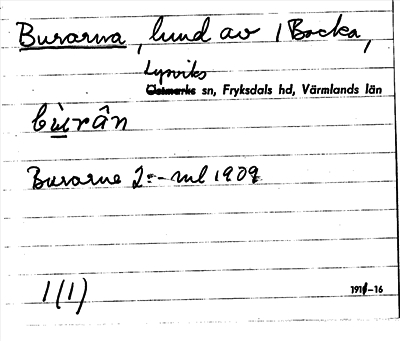 Burarna, lund av 1 Backa,
Lysviks
Östmarks sn, Fryksdals hd, Värmlands län
bùrân
Burarne 2=-ml 1909
1(1)
1914-16